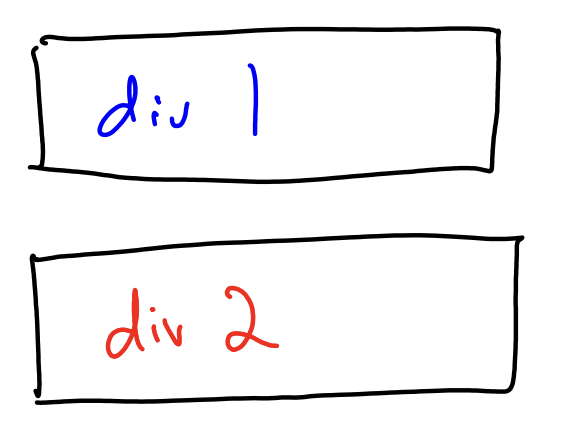 div 1
div 2